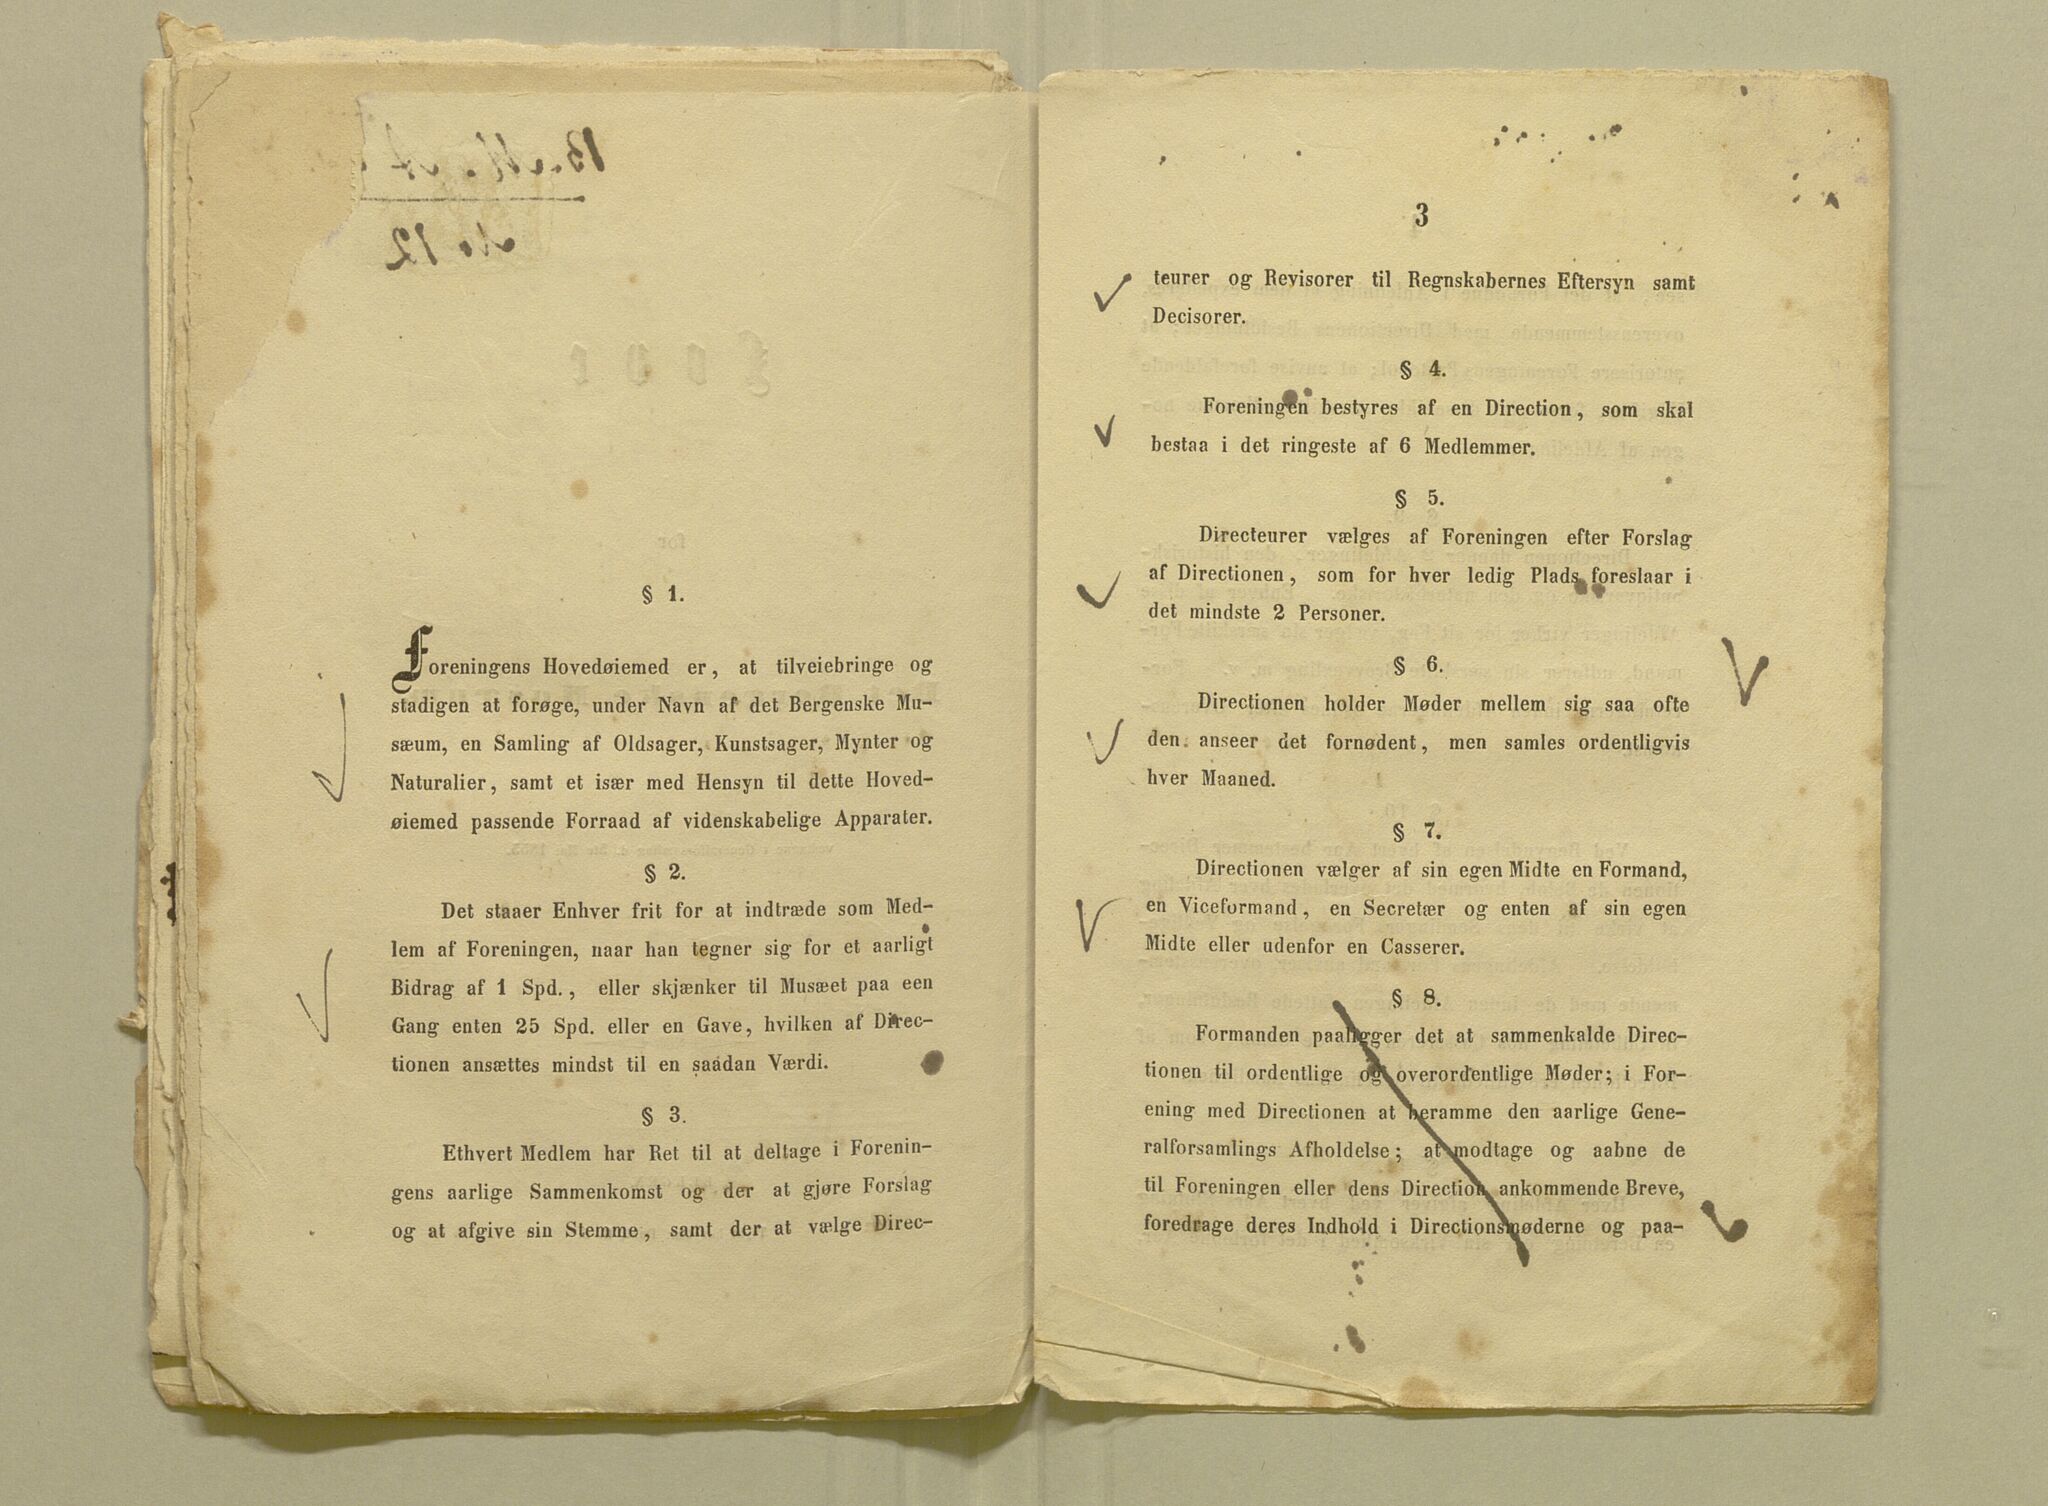 § 1.
Foreningens Hovedøiemed er, at tilveiebringe og
stadigen at forøge, under Navn af det Bergenske Mu-
sæum, en Samling af Oldsager, Kunstsager, Mynter og
Naturalier, samt et især med Hensyn til dette Hoved-
øiemed passende Forraad af videnskabelige Apparater.
§ 2.
Det staaer Enhver frit for at indtræde som Med-
lem af Foreningen, naar han tegner sig for et aarligt
Bidrag af 1 Spd., eller skjænker til Musæet paa een
Gang enten 25 Spd. eller en Gave, hvilken af Direc-
tionen ansættes mindst til en saadan Værdi.
§ 3.
Ethvert Medlem har Ret til at deltage i Forenin-
gens aarlige Sammenkomst og der at gjøre Forslag
og at afgive sin Stemme, samt der at vælge Direc-
3
teurer og Revisorer til Regnskabernes Eftersyn samt
Decisorer.
§ 4.
Foreningen bestyres af en Direction, som skal
bestaa i det ringeste af 6 Medlemmer.
§ 5.
Directeurer vælges af Foreningen efter Forslag
af Directionen, som for hver ledig Plads foreslaar i
det mindste 2 Personer.
§ 6.
Directionen holder Møder mellem sig saa ofte
den anseer det fornødent, men samles ordentligvis
hver Maaned.
§ 7.
Directionen vælger af sin egen Midte en Formand,
en Viceformand, en Secretær og enten af sin egen
Midte eller udenfor en Casserer.
§ 8.
Formanden paaligger det at sammenkalde Direc-
tionen til ordentlige og overordentlige Møder; i For-
ening med Directionen at beramme den aarlige Gene-
ralforsamlings Afholdelse; at modtage og aabne de
til Foreningen eller dens Direction ankommende Breve,
foredrage deres Indhold i Directionsmøderne og paa-